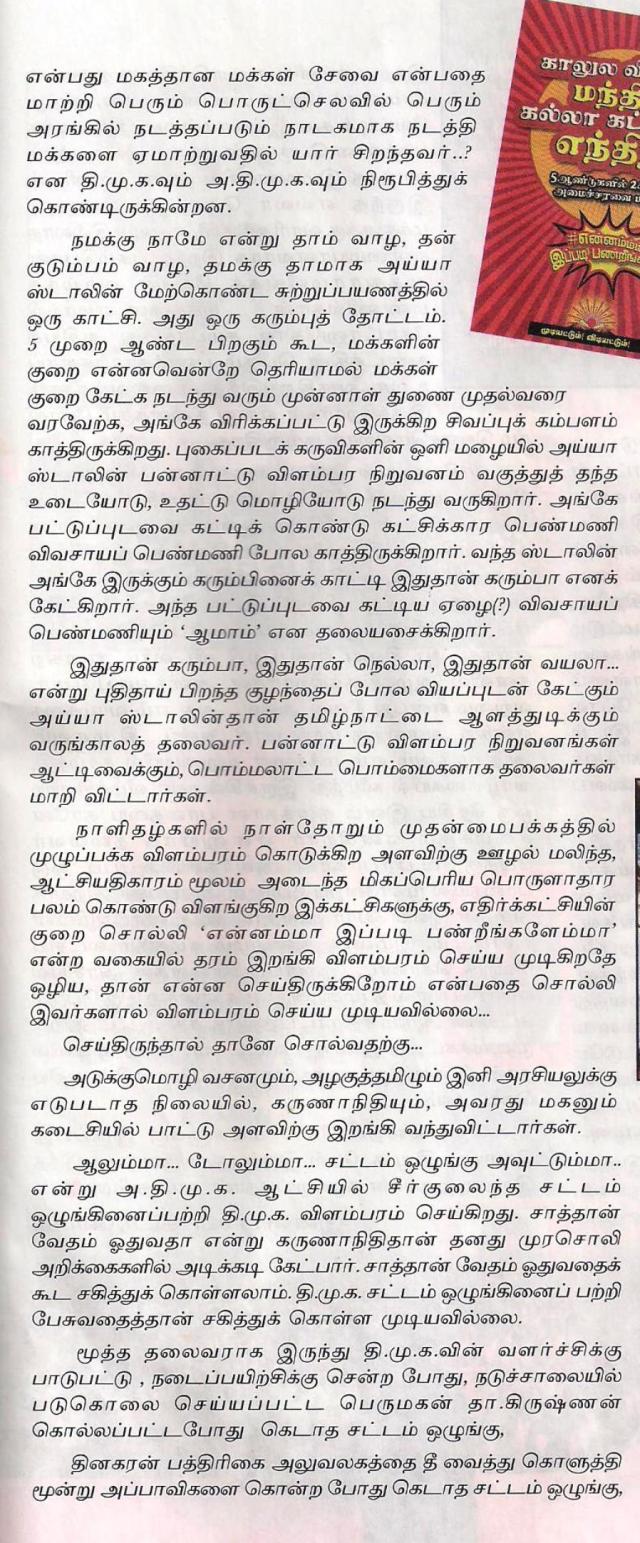 என்பது மகத்தான மக்கள் சேவை என்பதை
மாற்றி பெரும் பொருட்செலவில் பெரும்
அரங்கில் நடத்தப்படும் நாடகமாக நடத்தி
மக்களை ஏமாற்றுவதில் யார் சிறந்தவர்..?
என தி.மு.க.வும் அ.தி.மு.க.வும் நிரூபித்துக்
கொண்டிருக்கின்றன.
நமக்கு நாமே என்று தாம் வாழ, தன்
குடும்பம் வாழ, தமக்கு தாமாக அய்யா
ஸ்டாலின் மேற்கொண்ட சுற்றுப்பயணத்தில்
ஒரு காட்சி. அது ஒரு கரும்புத் தோட்டம்.
5 முறை ஆண்ட பிறகும் கூட, மக்களின்
குறை என்னவென்றே தெரியாமல் மக்கள்
குறை கேட்க நடந்து வரும் முன்னாள் துணை முதல்வரை
வரவேற்க, அங்கே விரிக்கப்பட்டு இருக்கிற சிவப்புக் கம்பளம்
காத்திருக்கிறது. புகைப்படக் கருவிகளின் ஒளி மழையில் அய்யா
ஸ்டாலின் பன்னாட்டு விளம்பர நிறுவனம் வகுத்துத் தந்த
உடையோடு, உதட்டு மொழியோடு நடந்து வருகிறார். அங்கே
பட்டுப்புடவை கட்டிக் கொண்டு கட்சிக்கார பெண்மணி
விவசாயப் பெண்மணி போல காத்திருக்கிறார். வந்த ஸ்டாலின்
அங்கே இருக்கும் கரும்பினைக் காட்டி இதுதான் கரும்பா எனக்
கேட்கிறார். அந்த பட்டுப்புடவை கட்டிய ஏழை(?) விவசாயப்
பெண்மணியும் ‘ஆமாம்’ என தலையசைக்கிறார்.
இதுதான் கரும்பா, இதுதான் நெல்லா, இதுதான் வயலா...
என்று புதிதாய் பிறந்த குழந்தைப் போல வியப்புடன் கேட்கும்
அய்யா ஸ்டாலின்தான் தமிழ்நாட்டை ஆளத்துடிக்கும்
வருங்காலத் தலைவர். பன்னாட்டு விளம்பர நிறுவனங்கள்
ஆட்டிவைக்கும், பொம்மலாட்ட பொம்மைகளாக தலைவர்கள்
மாறி விட்டார்கள்.
நாளிதழ்களில் நாள்தோறும் முதன்மைபக்கத்தில்
முழுப்பக்க விளம்பரம் கொடுக்கிற அளவிற்கு ஊழல் மலிந்த,
ஆட்சியதிகாரம் மூலம் அடைந்த மிகப்பெரிய பொருளாதார
பலம் கொண்டு விளங்குகிற இக்கட்சிகளுக்கு, எதிர்க்கட்சியின்
குறை சொல்லி ‘என்னம்மா இப்படி பண்றீங்களேம்மா’
என்ற வகையில் தரம் இறங்கி விளம்பரம் செய்ய முடிகிறதே
ஒழிய, தான் என்ன செய்திருக்கிறோம் என்பதை சொல்லி
இவர்களால் விளம்பரம் செய்ய முடியவில்லை...
செய்திருந்தால் தானே சொல்வதற்கு...
அடுக்குமொழி வசனமும், அழகுத்தமிழும் இனி அரசியலுக்கு
எடுபடாத நிலையில், கருணாநிதியும், அவரது மகனும்
கடைசியில் பாட்டு அளவிற்கு இறங்கி வந்துவிட்டார்கள்.
ஆலும்மா... டோலும்மா... சட்டம் ஒழுங்கு அவுட்டும்மா..
என்று அ.தி.மு.க. ஆட்சியில் சீர்குலைந்த சட்டம்
ஒழுங்கினைப்பற்றி தி.மு.க. விளம்பரம் செய்கிறது. சாத்தான்
வேதம் ஓதுவதா என்று கருணாநிதிதான் தனது முரசொலி
அறிக்கைகளில் அடிக்கடி கேட்பார். சாத்தான் வேதம் ஓதுவதைக்
கூட சகித்துக் கொள்ளலாம். தி.மு.க. சட்டம் ஒழுங்கினைப் பற்றி
பேசுவதைத்தான் சகித்துக் கொள்ள முடியவில்லை.
மூத்த தலைவராக இருந்து தி.மு.க.வின் வளர்ச்சிக்கு
பாடுபட்டு , நடைப்பயிற்சிக்கு சென்ற போது, நடுச்சாலையில்
படுகொலை செய்யப்பட்ட பெருமகன் தா.கிருஷ்ணன்
கொல்லப்பட்டபோது கெடாத சட்டம் ஒழுங்கு,
தினகரன் பத்திரிகை அலுவலகத்தை தீ வைத்து கொளுத்தி
மூன்று அப்பாவிகளை கொன்ற போது கெடாத சட்டம் ஒழுங்கு,
காலுல
மந்தி
கல்லா கட்
எந்தி
5 ஆண்டுகளில்
அமைச்சரவை
#என்னம்மா
இப்படி
முடியட்டும்! விடியட்டும்!